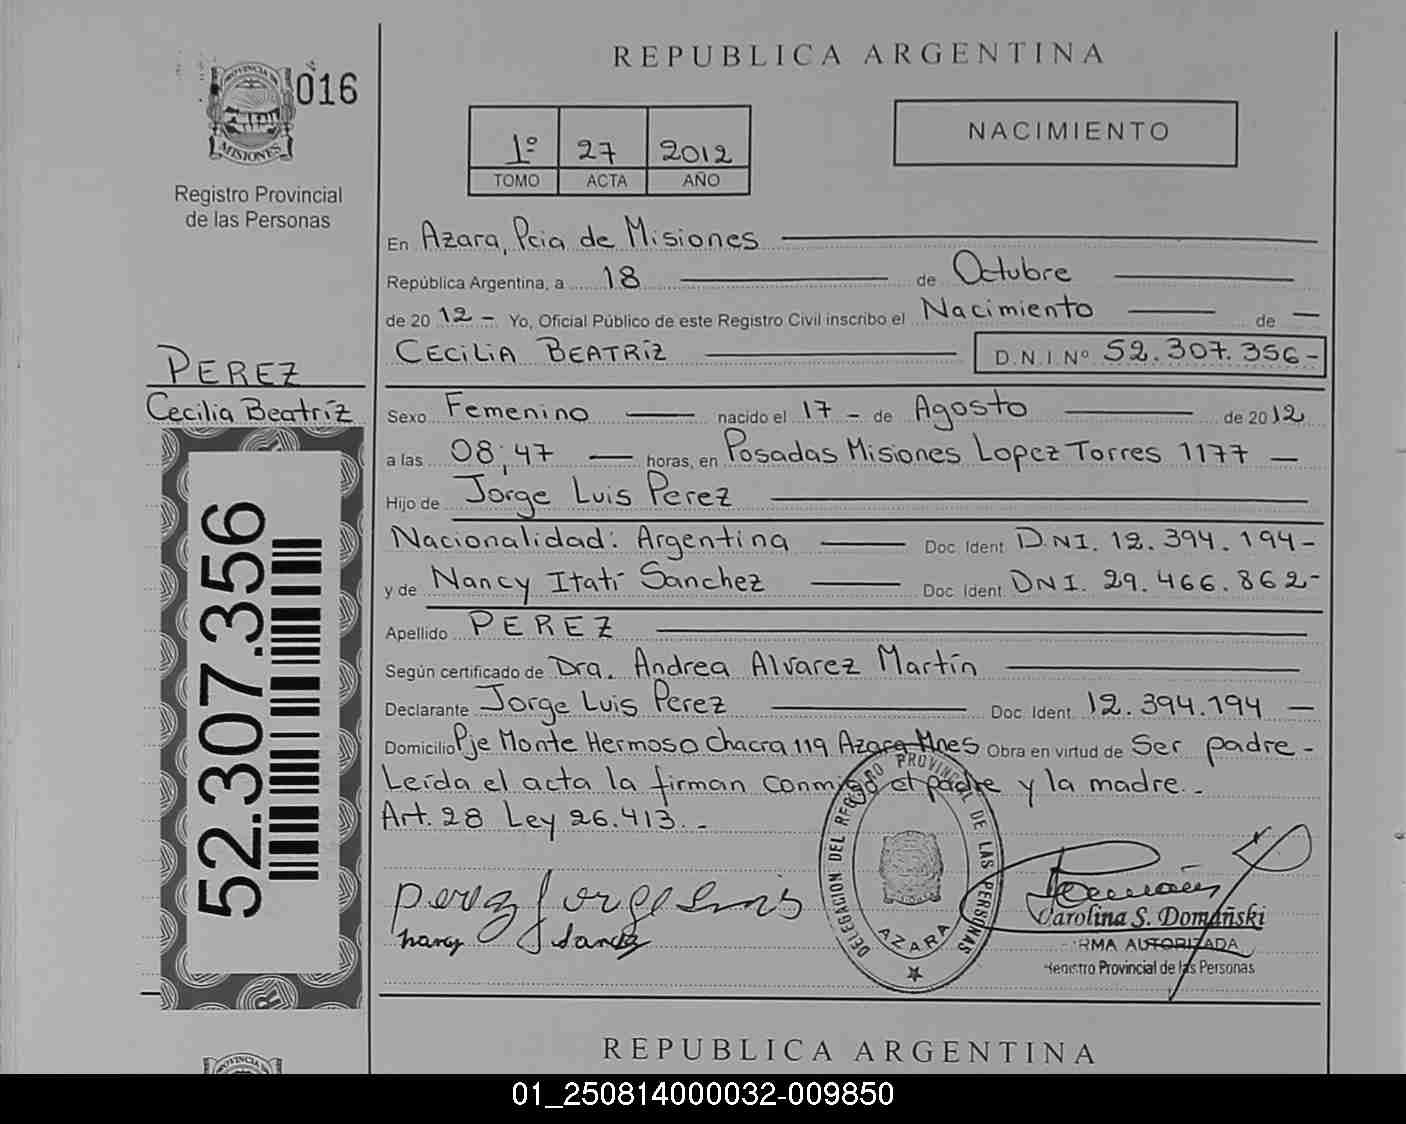 REPUBLICA ARGENTINA
016
PROVINCIA DE
MISIONES
Registro Provincial
de las Personas
1º 27 2012
TOMO ACTA AÑO
NACIMIENTO
En Azara, Pcia de Misiones
República Argentina, a 18 de Octubre
de 2012 - Yo, Oficial Público de este Registro Civil inscribo el Nacimiento de
CECILIA BEATRÍZ D.N.I. Nº 52.307.356-
PEREZ
Cecilia Beatríz
52.307.356
Sexo Femenino nacido el 17 - de Agosto de 2012
a las 08:47 horas, en Posadas Misiones Lopez Torres 1177
Hijo de Jorge Luis Perez
Nacionalidad: Argentina Doc. Ident. D.N.I. 12.394.194-
y de Nancy Itatí Sanchez Doc. Ident. DNI. 29.466.862-
Apellido PEREZ
Según certificado de Dra. Andrea Alvarez Martín
Declarante Jorge Luis Perez Doc. Ident. 12.394.194
Domicilio Pje Monte Hermoso Chacra 119 Azara Mnes Obra en virtud de Ser padre-
Leída el acta la firman conmigo el padre y la madre.-
Art. 28 Ley 26.413.-
DELEGACION DEL REGISTRO PROVINCIAL DE LAS PERSONAS
AZARA
perez Jorge Luis
nancy Sanchez
Carolina S. Domañski
FIRMA AUTORIZADA
Registro Provincial de las Personas
REPUBLICA ARGENTINA
PROVINCIA
01_250814000032-009850